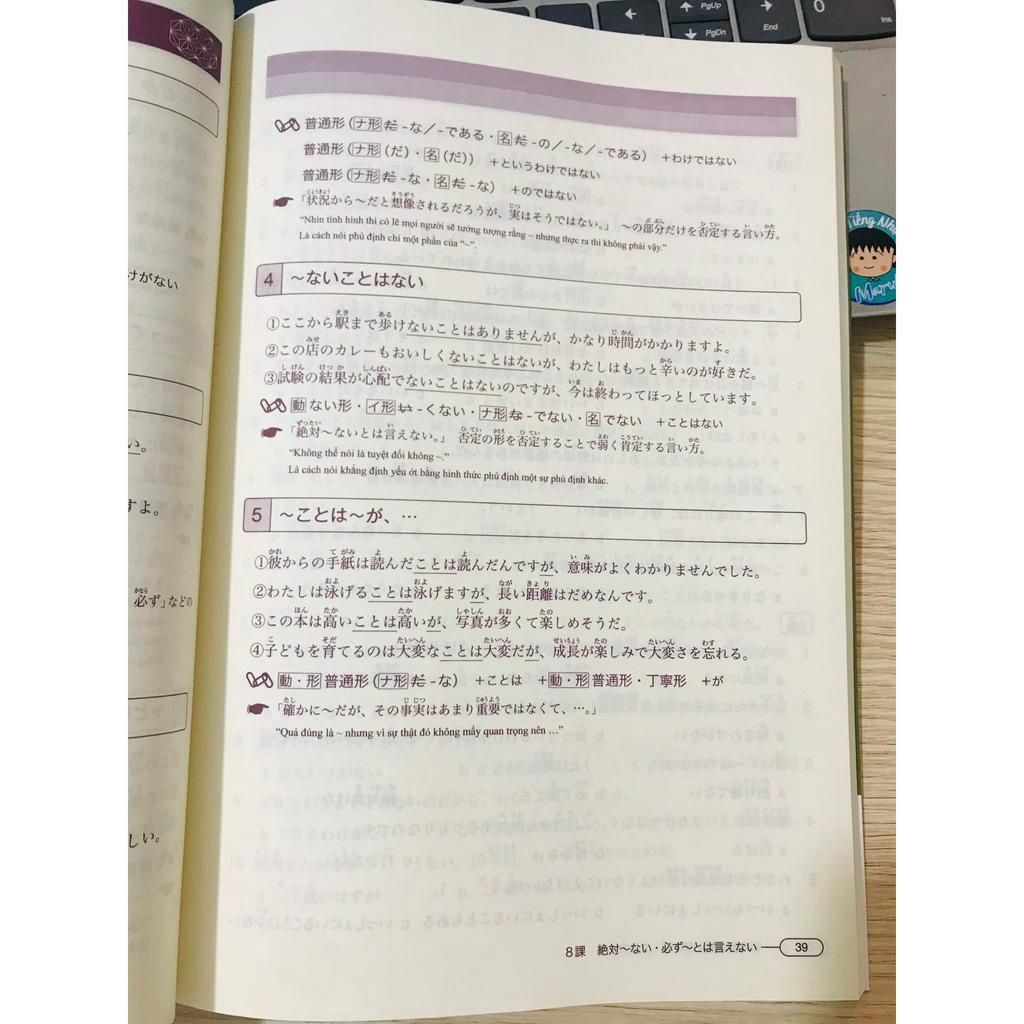 普通形(ナ形だ -な/-である・名だ -の/-な/-である) +わけではない
普通形(ナ形(だ)・名(だ)) +というわけではない
普通形(ナ形だ -な・名だ -な) +のではない
「状況から~だと想像されるだろうが、実はそうではない。」 ~の部分だけを否定する言い方。
"Nhìn tình hình thì có lẽ mọi người sẽ tưởng tượng rằng ~ nhưng thực ra thì không phải vậy."
Là cách nói phủ định chỉ một phần của "~".
4 ~ないことはない
①ここから駅まで歩けないことはありませんが、かなり時間がかかりますよ。
②この店のカレーもおいしくないことはないが、わたしはもっと辛いのが好きだ。
③試験の結果が心配でないことはないのですが、今は終わってほっとしています。
動ない形・イ形い -くない・ナ形な -でない・名でない +ことはない
「絶対~ないとは言えない。」 否定の形を否定することで弱く肯定する言い方。
"Không thể nói là tuyệt đối không ~."
Là cách nói khẳng định yếu ớt bằng hình thức phủ định một sự phủ định khác.
5 ~ことは~が、…
①彼からの手紙は読んだことは読んだんですが、意味がよくわかりませんでした。
②わたしは泳げることは泳げますが、長い距離はだめなんです。
③この本は高いことは高いが、写真が多くて楽しめそうだ。
④子どもを育てるのは大変なことは大変だが、成長が楽しみで大変さを忘れる。
動・形普通形(ナ形だ -な) +ことは +動・形普通形・丁寧形 +が
「確かに~だが、その事実はあまり重要ではなくて、…。」
"Quả đúng là ~ nhưng vì sự thật đó không mấy quan trọng nên …"
8課 絶対~ない・必ず~とは言えない 39
けがない
い。
すよ。
必ず」などの
しい。
PgUp
PgDn
End
0
Ins
Tiếng Nhật
Maru